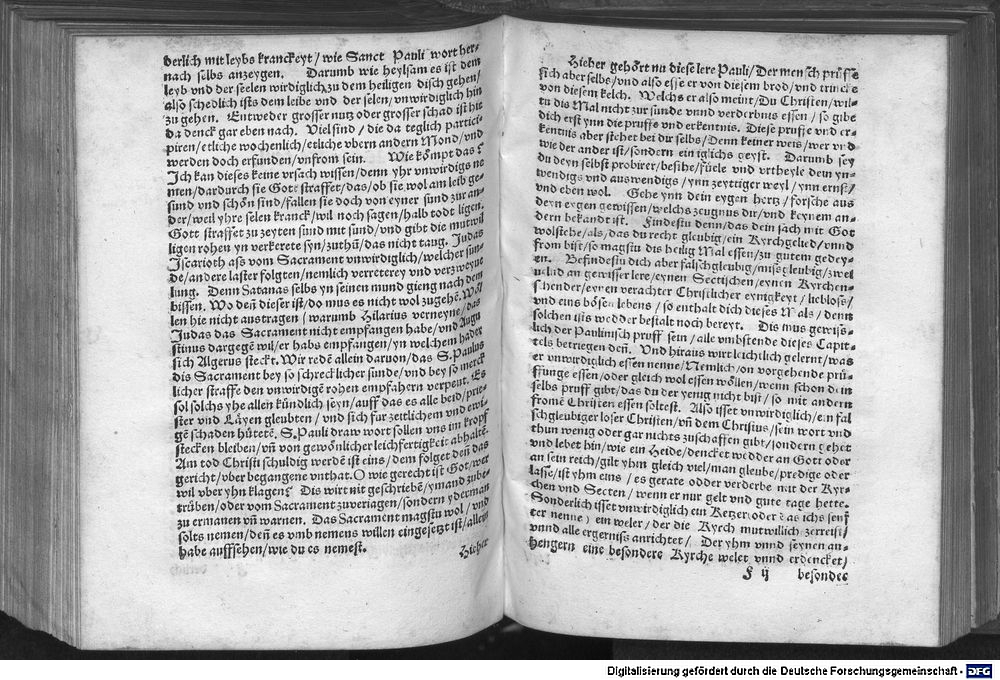 derlich mit leybs kranckeyt / wie Sanct Pauli wort her-
nach selbs anzeygen. Darumb wie heylsam es ist dem
leyb vnd der seelen wirdiglich zu dem heiligen disch gehen /
also schedlich ists dem leibe vnd der selen / vnwirdiglich hin
zu gehen. Entweder grosser nutz oder grosser schad ist hie
da denck gar eben nach. Viel sind / die da teglich partici-
piren / etliche wochenlich / etliche vbern andern Mond / vnd
werden doch erfunden / vnfrom sein. Wie kömpt das?
Ich kan dieses keine vrsach wissen / denn yhr vnwirdigs ne
men / dardurch sie Gott straffet / das / ob sie wol am leib ge-
sund vnd schön sind / fallen sie doch von eyner sund zur an-
der / weil yhre selen kranck / wil noch sagen / halb todt ligen.
Gott straffet zu zeyten sund mit sund / vnd gibt die mutwil
ligen rohen yn verkerete syn / zuthū / das nicht taug. Judas
Iscarioth ass vom Sacrament vnwirdiglich / welcher sun-
de / andere laster folgten / nemlich verreterey vnd verzweyue
lung. Denn Satanas selbs yn seinen mund gieng nach dem
bissen. Wo deñ dieser ist / do mus es nicht wol zugehē. Wöl
len hie nicht austragen / warumb Hilarius verneyne / das
Judas das Sacrament nicht empfangen habe / vnd Augu
stinus dargegē wil / er habs empfangen / yn welchem hader
sich Algerus steckt. Wir redē allein daruon / das S. Paulus
dis Sacrament bey so schrecklicher sunde / vnd bey so merck
licher straffe den vnwirdigē rohen empfahern verpeut. Es
sol solchs yhe allen kündlich seyn / auff das es alle beid / prie-
ster vnd Läyen gleubten / vnd sich fur zeitlichem vnd ewi-
gē schaden hütetē. S. Pauli draw wort sollen vns im kropf
stecken bleiben / vñ von gewönlicher leichfertigkeit abhaltē.
Am tod Christi schuldig werdē ist eins / dem folget deñ das
gericht / vber begangene vnthat. O wie gerecht ist Got / wer
wil vber yhn klagen? Dis wirt nit geschriebē / ymand zube-
trüben / oder vom Sacrament zuueriagen / sondern yderman
zu ermanen vñ warnen. Das Sacrament magstu wol / vnd
solts nemen / deñ es vmb nemens willen eingesetzt ist / allein
habe auffsehen / wie du es nemest.
Hieher
Hieher gehört nu diese lere Pauli / Der mensch prüffe
sich aber selbs / vnd also esse er von diesem brod / vnd trincke
von diesem kelch. Welchs er also meint / Du Christen / wil-
tu dis Mal nicht zur sunde vnnd verderbnis essen / so gibe
dich erst ynn die pruffe vnd erkentnis. Diese pruffe vnd er-
kentnis aber stehet bei dir selbs / Denn keiner weis / wer vnd
wie der ander ist / sondern ein iglichs geyst. Darumb sey
du deyn selbst probirer / besihe / füele vnd vrtheyle dein yn-
wendigs vnd auswendigs / ynn zeyttiger weyl / ynn ernst /
vnd eben wol. Gehe ynn dein eygen hertz / forsche aus
deyn eygen gewissen / welchs zeugnus dir / vnd keynem an-
dern bekandt ist. Findestu denn / das dein sach mit Got
wolstehe / als / das du recht gleubig / ein Kyrchgelied / vnnd
from bist / so magstu dis heilig Mal essen / zu gutem gedey-
en. Befindestu dich aber falschgleubig / misgleubig / zwei
uelnd an gewisser lere / eynen Sectischen / eynen Kyrchen-
schender / eynen verachter Christlicher eynigkeyt / lieblose /
vnd eins bösen lebens / so enthalt dich dieses Mals / denn
solchen ists wedder bestalt noch bereyt. Dis mus gewiss-
lich der Paulinisch pruff sein / alle vmbstende dieses Capit-
tels betriegen deñ. Vnd hiraus wirt leichtlich gelernt / was
er vnwirdiglich essen nenne / Nemlich / on vorgehende prü-
ffunge essen / oder gleich wol essen wöllen / wenn schon dein
selbs pruff gibt / das du der yenig nicht bist / so mit andern
fromē Christen essen soltest. Also isset vnwirdiglich / ein fal
schgleubiger loser Christen / vñ dem Christus / sein wort vnd
thun wenig oder gar nichts zuschaffen gibt / sondern gehet
vnd lebet hin / wie ein Heide / dencket wedder an Gott oder
an sein reich / gilt yhm gleich viel / man gleube / predige oder
lasse / ist yhm eins / es gerate odder verderbe mit der Kyr-
chen vnd Secten / wenn er nur gelt vnd gute tage hette.
Sonderlich isset vnwirdiglich ein Ketzer / oder das ichs senf
ter nenne) ein weler / der die Kyrch mutwillich zerreist /
vnnd alle ergernis anrichtet / Der yhm vnnd seynen an-
hengern eine besondere Kyrche welet vnnd erdencket /
F ij besonder
Digitalisierung gefördert durch die Deutsche Forschungsgemeinschaft - DFG